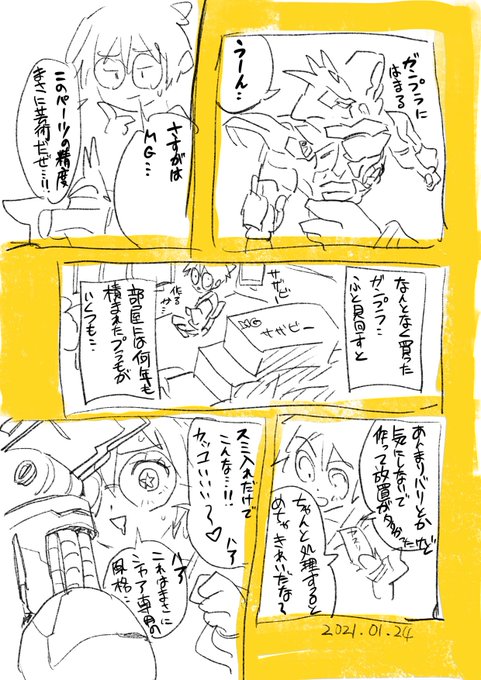 ガンプラに
はまる
うーん…
さすがは
MG…
このパーツの精度
まさに芸術だぜ…!!
なんとなく買った
ガンプラ…
ふと見回すと
サザビー
作る
か…
MG
サザビー
部屋には何年も
積まれたプラモが
いくつも…
あんまりバリとか
気にしないで
作って放置が多かったけど
ヤスリ
ちゃんと処理すると
めちゃきれいだな〜
スミ入れだけで
こんな…!!
カッコいい…〜♡
ハア
ハア
これはまさに
シャア専用の
風格…
2021.01.24